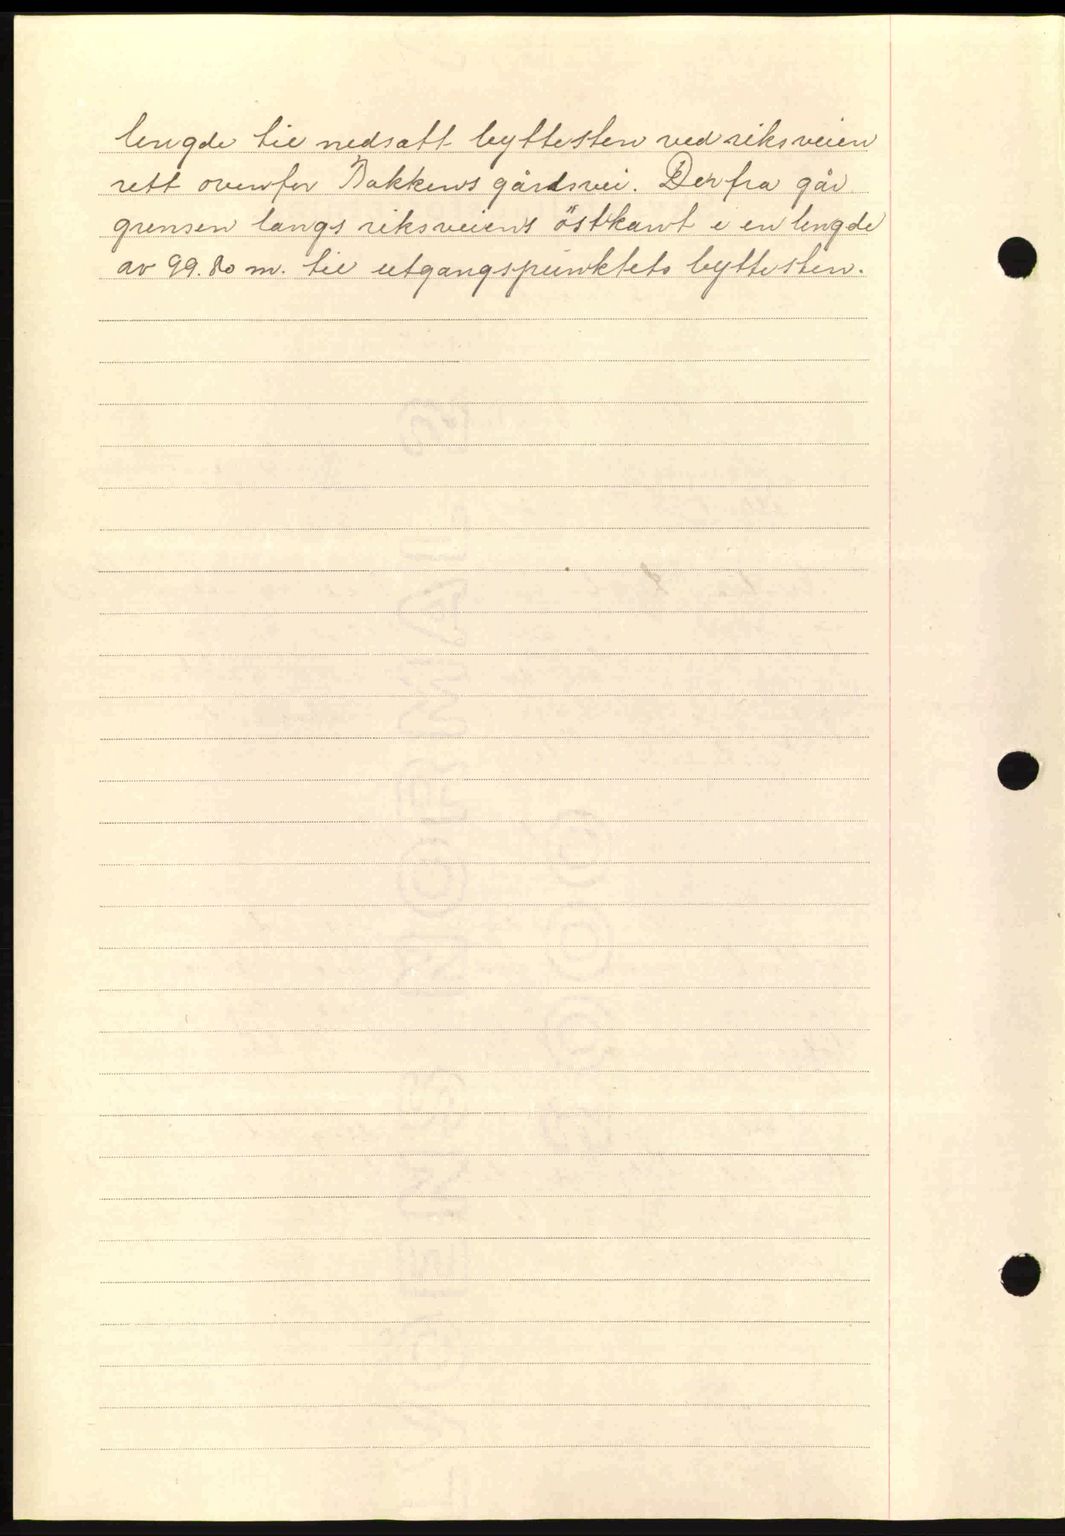 lengde til nedsatt byttesten ved riksveien
rett ovenfor Bakkens gårdsvei. Derfra går
grensen langs riksveiens östkant i en lengde
av 99.80 m. til utgangspunktets byttesten.